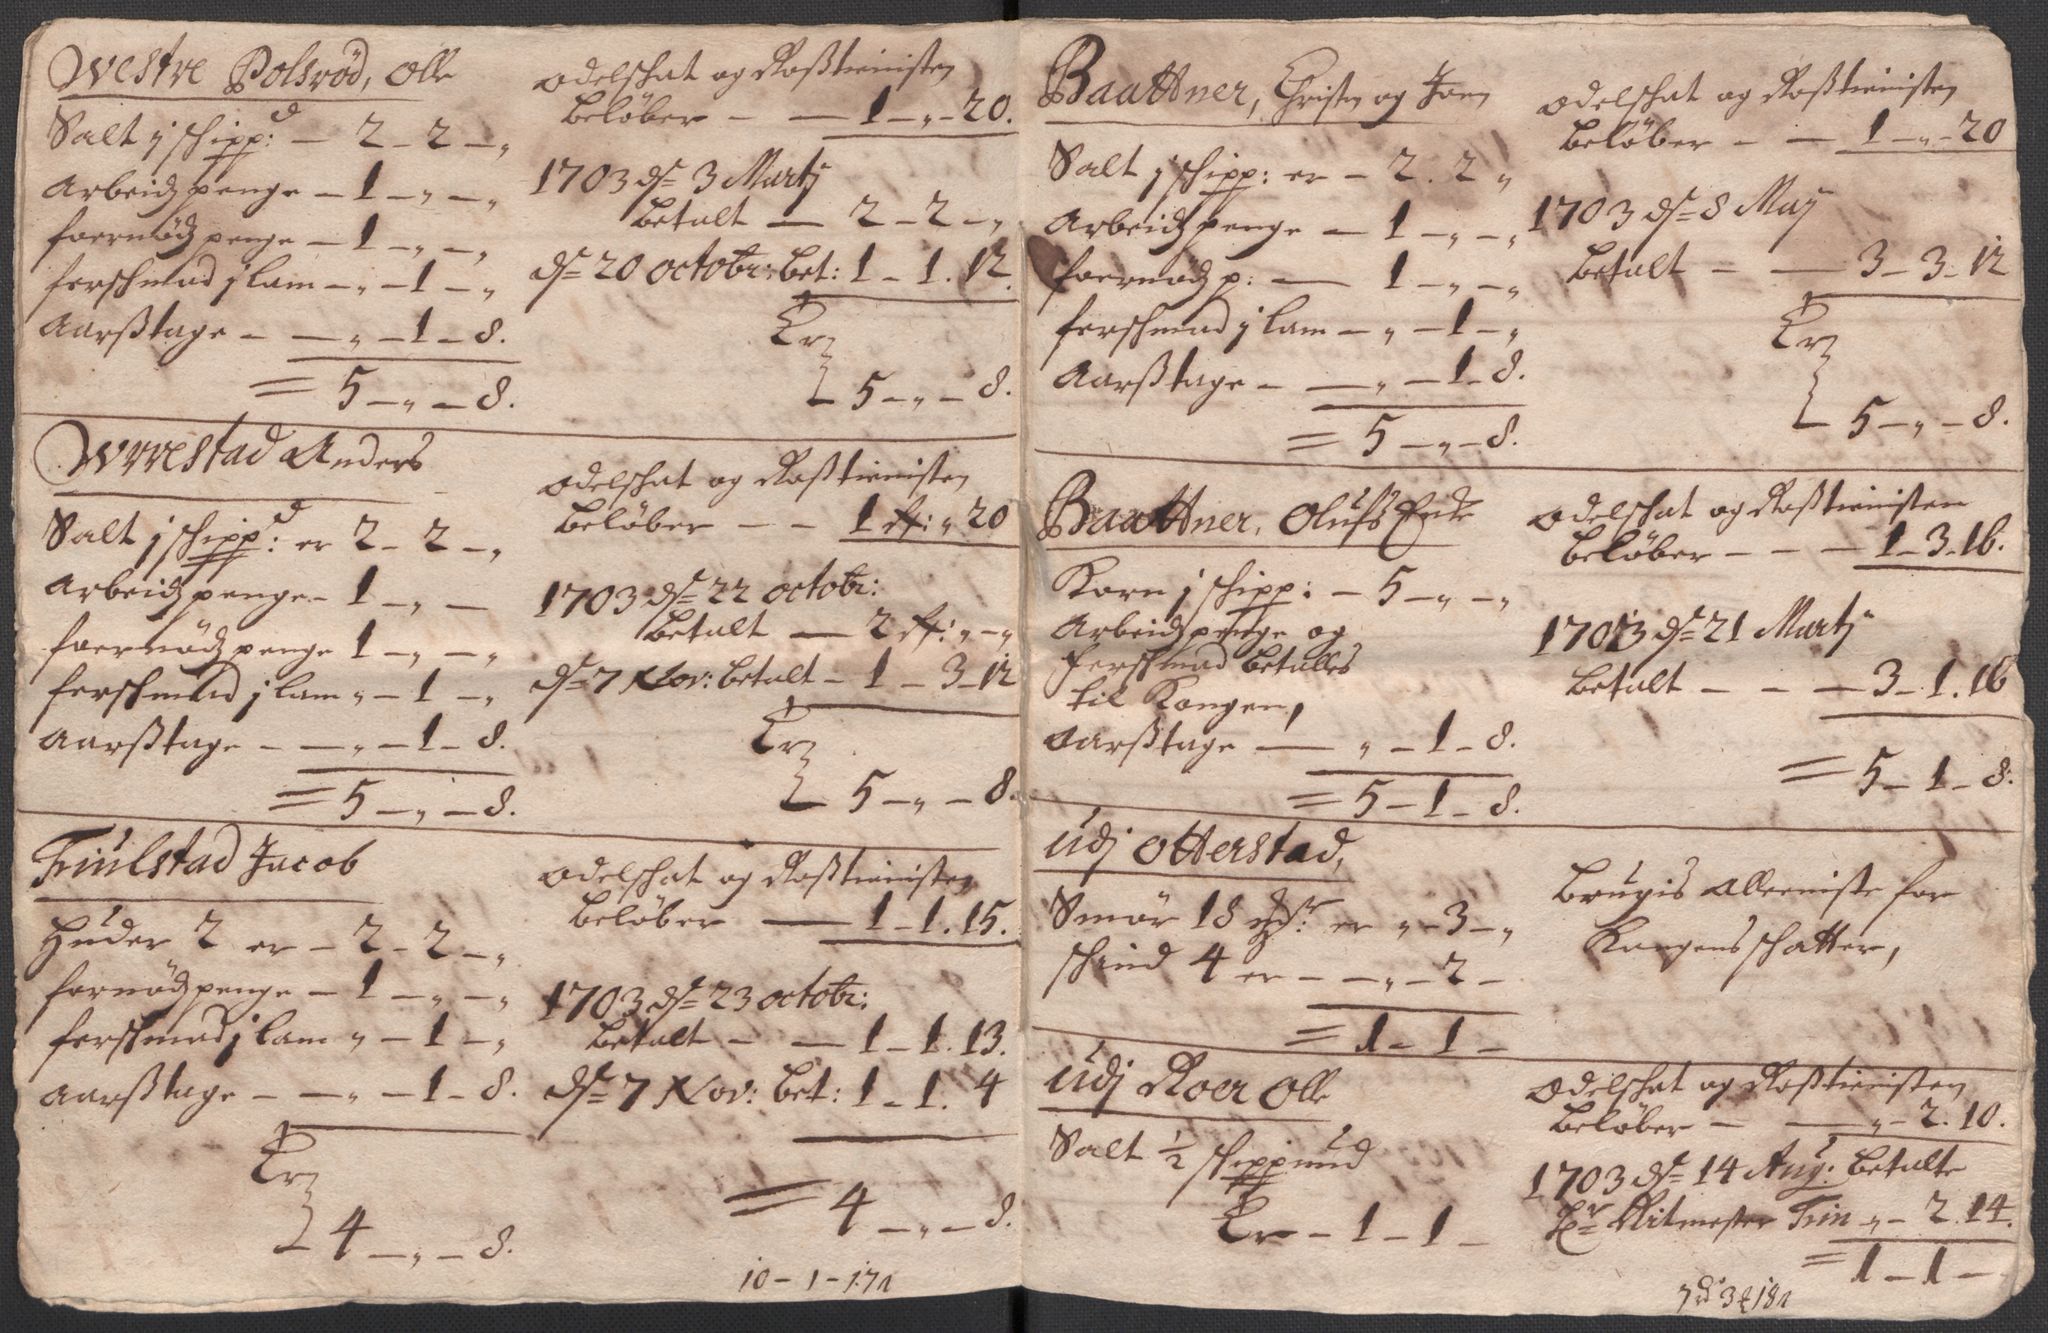 Westre Polsröd, Olle
Salt j schippd: – 2 – 2 – „
Arbeidz penge – 1 – „ – „
foernödz penge – 1 – „ – „
ferschmad j lam – „ – 1 – „
Aarßtage – – „ – 1 – 8.
= 5 – „ – 8.
odelschat og Roßtienisten
beløber – – 1 – „ – 20.
1703 dn 3 Martj
betalt – 2 – 2 – „
dn 20 octobr: bet: 1 – 1. 12.
Er
5 – „ – 8.
Wrrestad Anders
Salt j schippd: er 2 – 2 – „
Arbeidz penge – 1 – „ –
foernödz penge 1 – „ – „
ferschmad j lam „ – 1 – „
Aarßtage – – „ – 1 – 8.
= 5 – „ – 8.
odelschat og Roßtienisten
beløber – – 1 rf: „ 20
1703 dn 22 octobr:
betalt – 2 rf: „ – „
dn 7 Nov: betalt – 1 – 3 – 12
Er
5 – „ – 8.
Fiulstad Jacob
Huder 2 er – 2 – 2 – „
fornödz penge – 1 – „ – „
ferschmad j lam „ – 1 – „
Aarßtage – – „ – 1 – 8.
Er
4 – „ – 8.
odelschat og Roßtienisten
beløber – 1 – 1. 15.
1703 dn 23 octobr:
betalt – – 1 – 1. 13.
dn 7 Nov: bet: 1 – 1. 4
= 4 – „ – 8.
10 – 1 – 17
Baattner, Christen og Joen
Salt j schipp: er – 2. 2 „
Arbeidz penge – 1 – „ – „
foernödz p: – 1 – „ – „
ferschmad j lam – „ – 1 – „
Aarßtage – – „ – 1 – 8.
= 5 – „ – 8.
odelschat og Roßtienisten
beløber – – 1 – „ – 20
1703 dn 8 Maj
betalt – – 3 – 3 – 12
Er
5 – „ – 8.
Baattner, Olufs Enke
Korn j schipp: – 5 – „ – „
Arbeidz penge og
ferschmad betalles
til Kongen,
Aarßtage – „ – 1 – 8.
= 5 – 1 – 8.
odelschat og Roßtienisten
beløber – – – 1 – 3 – 16.
1703 dn 21 Martj
betalt – – – 3 – 1. 16
= 5 – 1 – 8.
udj Otterstad,
Smør 18 er „ – 3 – „
schind 4 er – – „ – 2 –
= 1 – 1 –
brugis alleeniste for
Kongens schatter,
udj Roer Olle
Salt ½ schippund
Er – 1 – 1 –
odelschat og Roßtienisten
beløber – – „ – 2. 10.
1703 dn 14 Aug: betalte
Hr Ritmester „ – 2. 14.
= 1 – 1 –